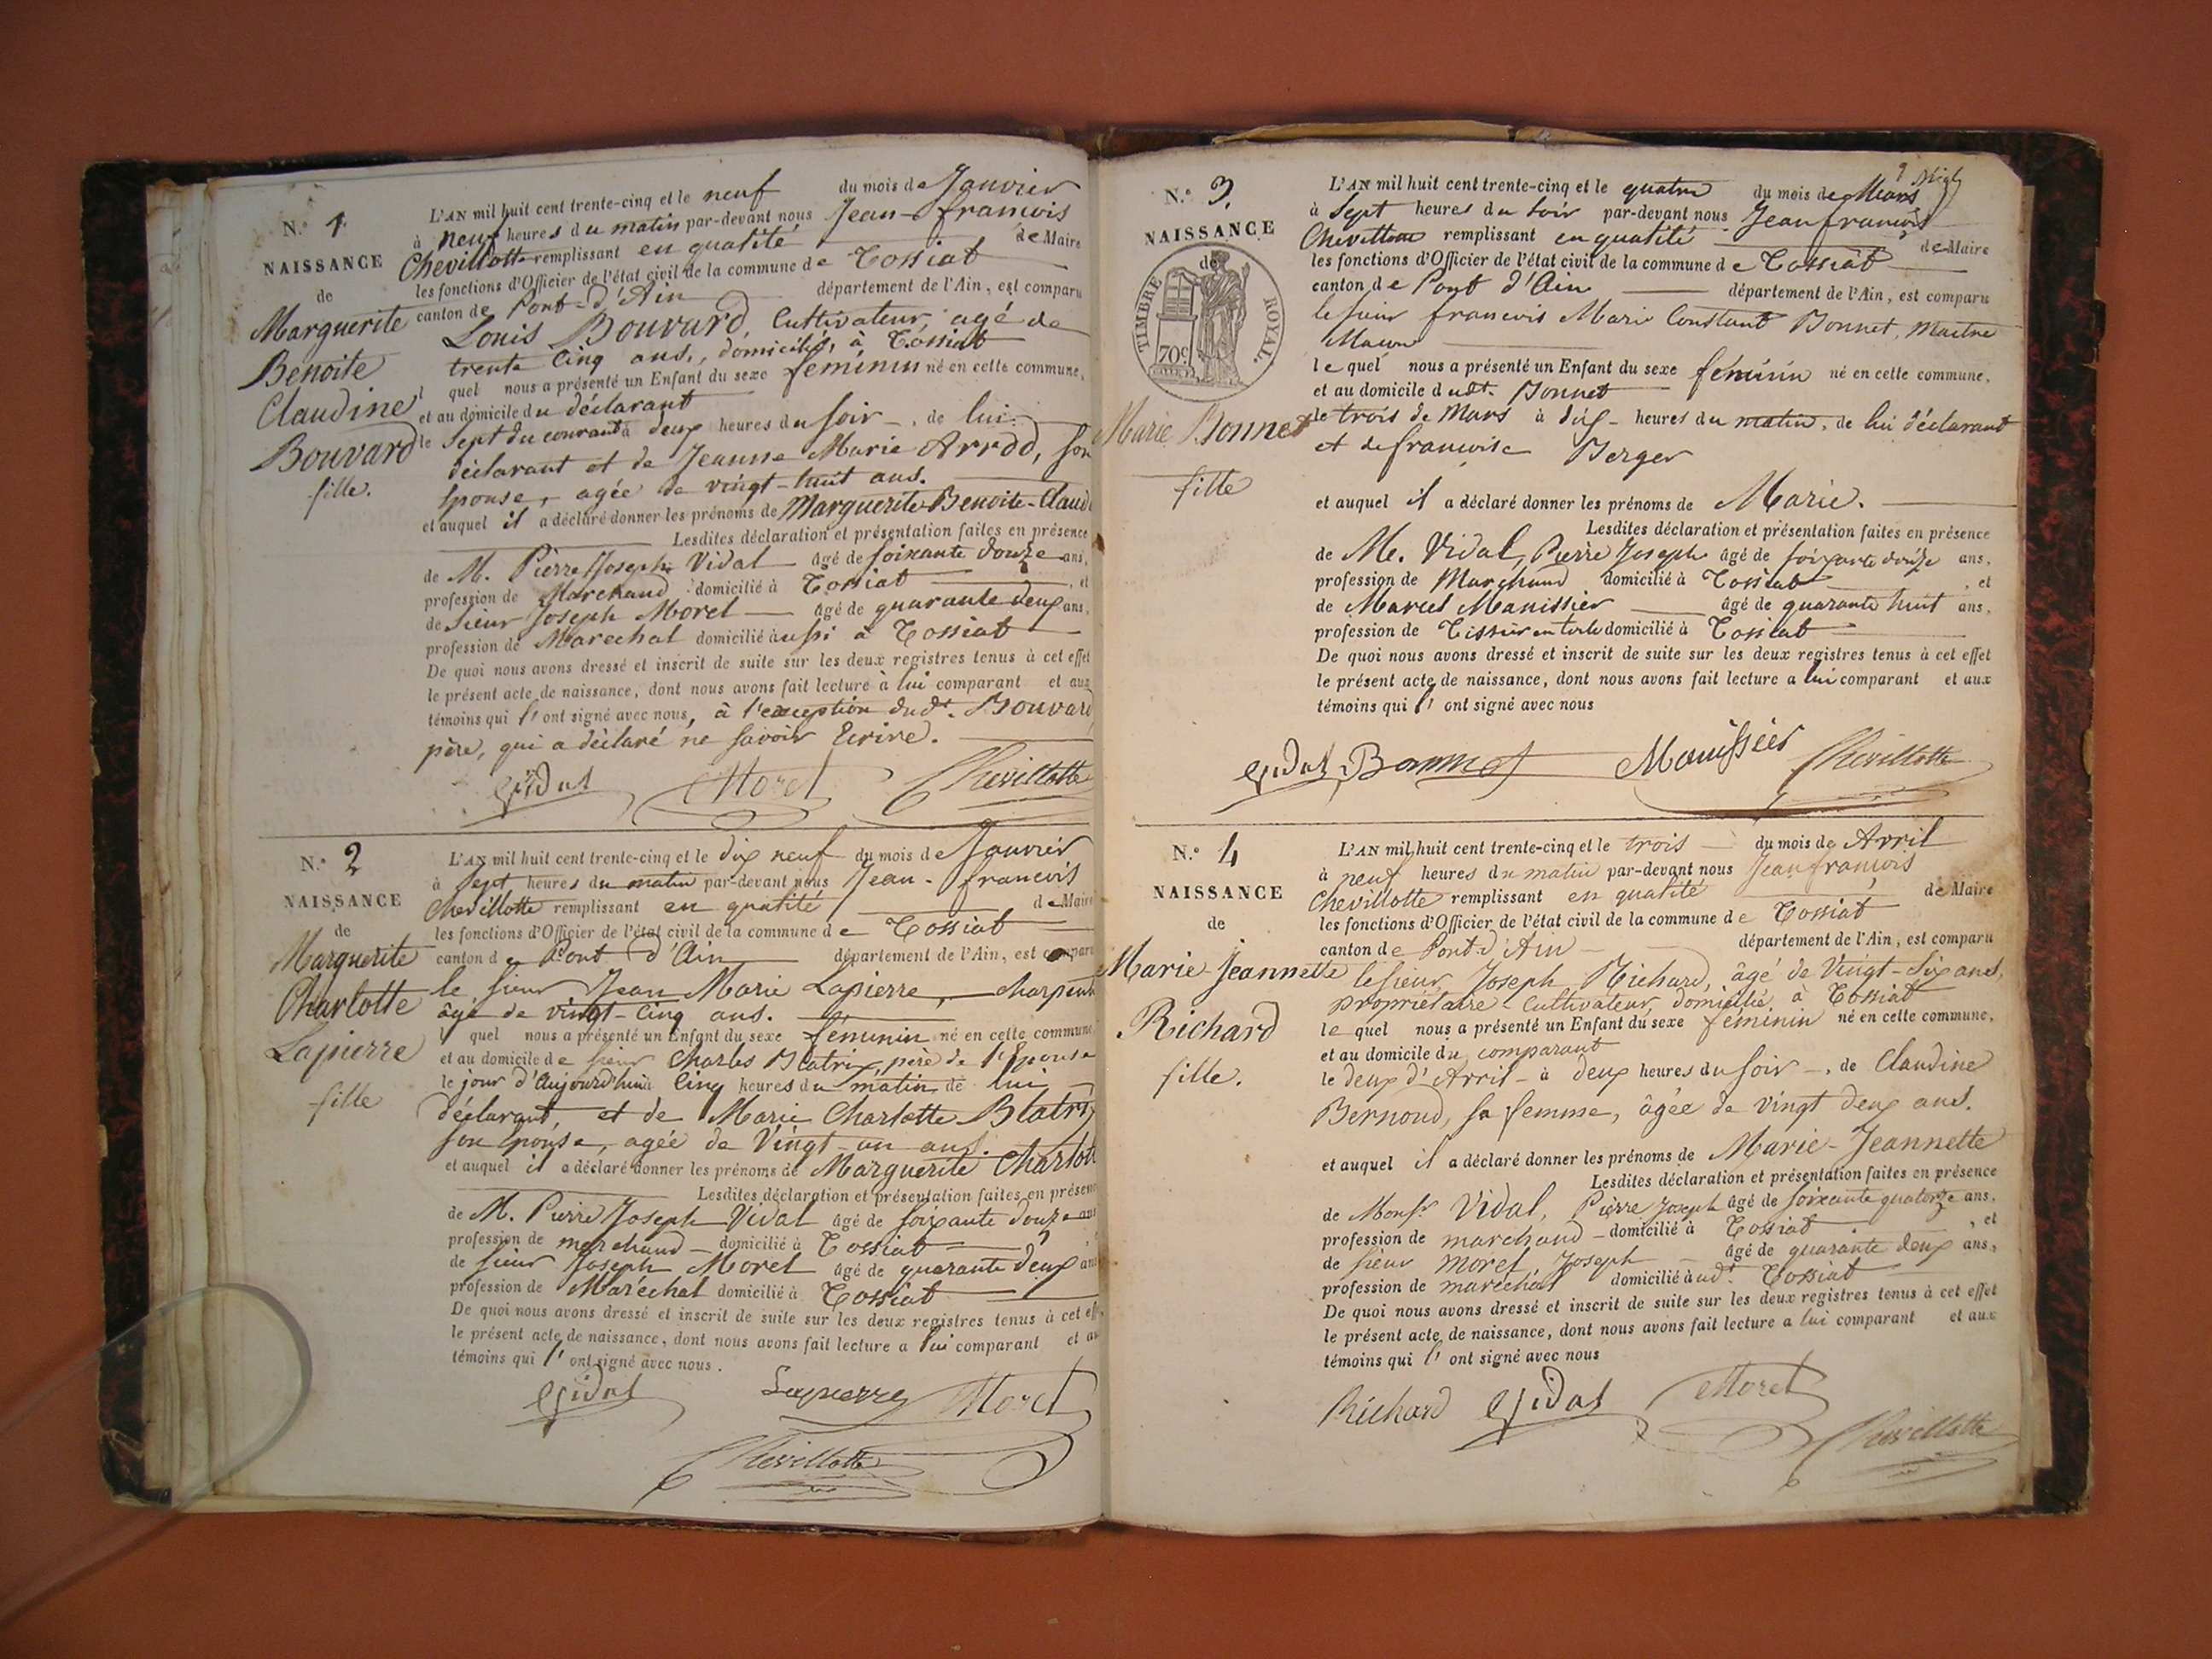 N.° 1
NAISSANCE
de
Marguerite
Benoite
Claudine
Bouvard
fille.
L'AN mil huit cent trente-cinq et le neuf du mois de Janvier
à neuf heures du matin par-devant nous Jean-francois
Chevillotte remplissant en qualité de Maire
les fonctions d'Officier de l'état civil de la commune de Tossiat
canton de Pont-d'Ain département de l'Ain, est comparu
Louis Bouvard, Cultivateur, agé de
trente Cinq ans, domicilié, à Tossiat
l quel nous a présenté un Enfant du sexe féminin né en cette commune,
et au domicile du déclarant
le Sept du courant à deux heures du soir, de lui
déclarant et de Jeanne Marie Arrdd, son
Epouse, agée de vingt-huit ans.
et auquel il a déclaré donner les prénoms de Marguerite-Benoite-Claud
Lesdites déclaration et présentation faites en présence
de M. Pierre Joseph Vidal âgé de soixante douze ans,
profession de Marchand domicilié à Tossiat, et
de Sieur Joseph Morel âgé de quarante deux ans,
profession de Marechal domicilié aussi à Tossiat
De quoi nous avons dressé et inscrit de suite sur les deux registres tenus à cet effet
le présent acte de naissance, dont nous avons fait lecture à lui comparant et aux
témoins qui l' ont signé avec nous, à l'exception dudt. Bouvard
père, qui a déclaré ne savoir Ecrire.
Vidal Morel Chevillotte
N.° 2
NAISSANCE
de
Marguerite
Charlotte
Lapierre
fille
L'AN mil huit cent trente-cinq et le dix neuf du mois de Janvier
à Sept heures du matin par-devant nous Jean-francois
Chevillotte remplissant en qualité de Maire
les fonctions d'Officier de l'état civil de la commune de Tossiat
canton de Pont d'Ain département de l'Ain, est comparu
le sieur Jean Marie Lapierre, charpent
âgé de vingt-Cinq ans.
quel nous a présenté un Enfant du sexe féminin né en cette commune
et au domicile de sieur Charles Blatrix, père de l'Epouse
le jour d'Aujourd'hui à Cinq heures du matin de lui
déclarant, et de Marie Charlotte Blatrix
son Epouse, agée de Vingt-un ans.
et auquel il a déclaré donner les prénoms de Marguerite Charlott
Lesdites déclaration et présentation faites en présence
de M. Pierre Joseph Vidal âgé de soixante douze ans
profession de marchand domicilié à Tossiat
de sieur Joseph Morel âgé de quarante deux ans
profession de Maréchal domicilié à Tossiat
De quoi nous avons dressé et inscrit de suite sur les deux registres tenus à cet eff
le présent acte de naissance, dont nous avons fait lecture a lui comparant et au
témoins qui l' ont signé avec nous.
Vidal Lapierre Morel
Chevillotte
N.° 3
NAISSANCE
de
TIMBRE ROYAL.
70c
Marie Bonnet
fille
L'AN mil huit cent trente-cinq et le quatre du mois de Mars
à Sept heures du soir par-devant nous Jean francois
Chevillotte remplissant en qualité de Maire
les fonctions d'Officier de l'état civil de la commune de Tossiat
canton de Pont d'Ain département de l'Ain, est comparu
le sieur francois Marie Constant Bonnet, Maitre
Maçon
le quel nous a présenté un Enfant du sexe féminin né en cette commune,
et au domicile dudt. Bonnet
le trois de Mars à dix heures du matin, de lui déclarant
et de francoise Berger
et auquel il a déclaré donner les prénoms de Marie.
Lesdites déclaration et présentation faites en présence
de Me. Vidal, Pierre Joseph âgé de soixante douze ans,
profession de Marchand domicilié à Tossiat, et
de Marcel Manissier âgé de quarante huit ans,
profession de Tissier en toile domicilié à Tossiat
De quoi nous avons dressé et inscrit de suite sur les deux registres tenus à cet effet
le présent acte de naissance, dont nous avons fait lecture a lui comparant et aux
témoins qui l' ont signé avec nous
Vidal Bonnet Manissier Chevillotte
N.° 4
NAISSANCE
de
Marie-Jeannette
Richard
fille.
L'AN mil huit cent trente-cinq et le trois du mois de Avril
à neuf heures du matin par-devant nous Jean françois
Chevillotte remplissant en qualité de Maire
les fonctions d'Officier de l'état civil de la commune de Tossiat
canton de Pont-d'Ain département de l'Ain, est comparu
le sieur Joseph Richard, âgé de Vingt-Six ans,
propriétaire Cultivateur, domicilié à Tossiat
le quel nous a présenté un Enfant du sexe féminin né en cette commune,
et au domicile du comparant
le deux d'Avril à deux heures du soir, de Claudine
Bernoud, sa femme, âgée de vingt deux ans.
et auquel il a déclaré donner les prénoms de Marie-Jeannette
Lesdites déclaration et présentation faites en présence
de Monsr. Vidal, Pierre Joseph âgé de soixante quatorze ans,
profession de marchand domicilié à Tossiat, et
de sieur Morel Joseph âgé de quarante deux ans,
profession de maréchal domicilié à udt. Tossiat
De quoi nous avons dressé et inscrit de suite sur les deux registres tenus à cet effet
le présent acte de naissance, dont nous avons fait lecture a lui comparant et aux
témoins qui l' ont signé avec nous
Richard Vidal Morel
Chevillotte